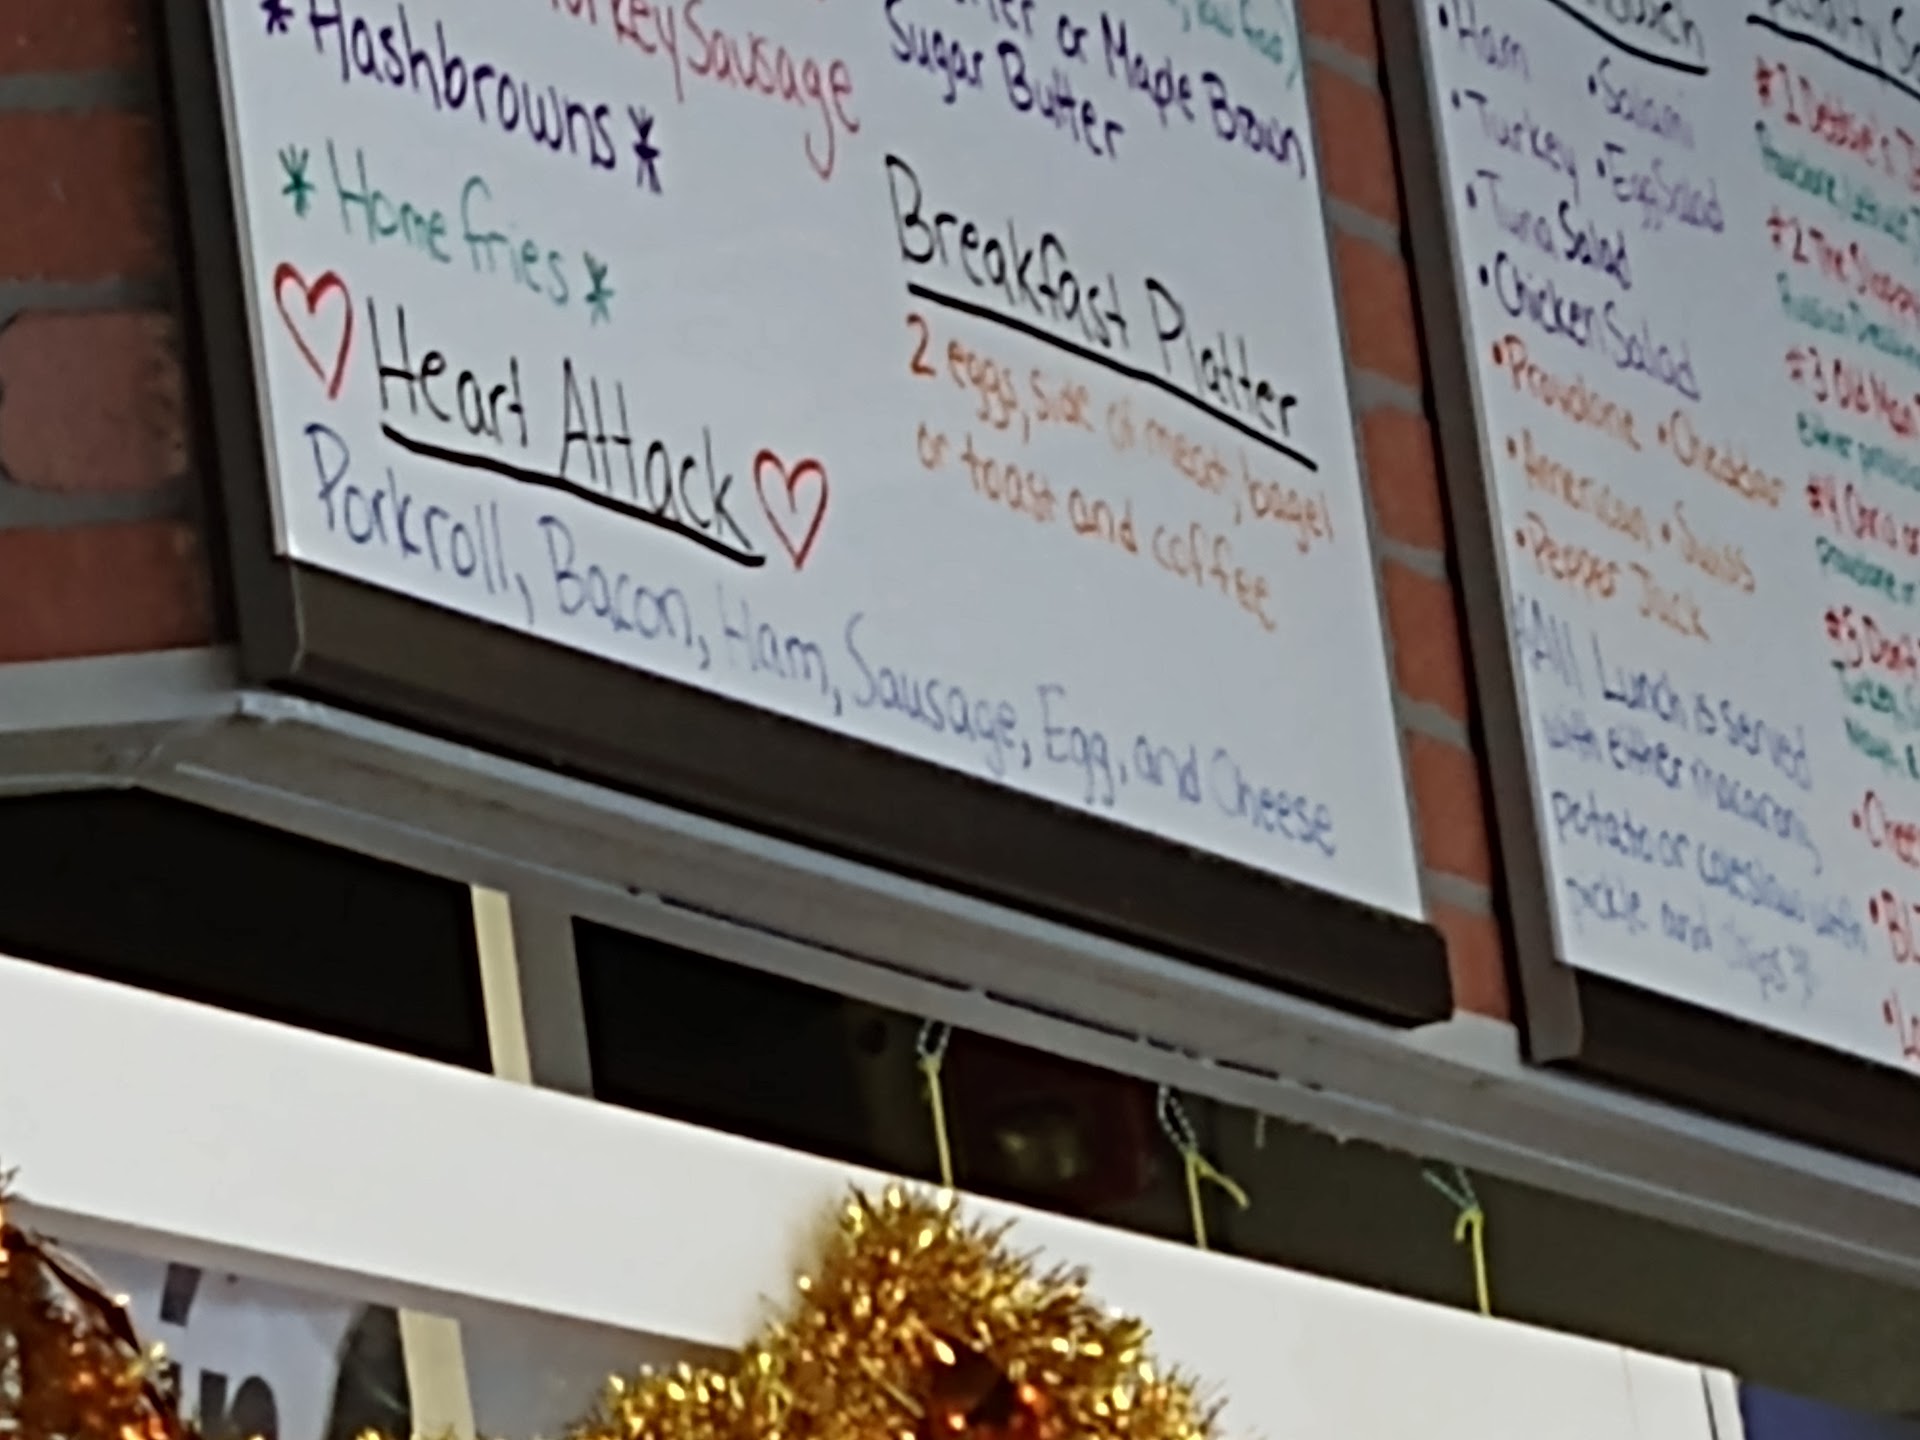 Turkey Sausage
* Hashbrowns *
* Home fries *
Heart Attack
Porkroll, Bacon, Ham, Sausage, Egg, and Cheese
or Maple Brown
Sugar Butter
Breakfast Platter
2 eggs, side of meat, bagel
or toast and coffee
• Ham • Salami
• Turkey • Egg Salad
• Tuna Salad
• Chicken Salad
• Provolone • Cheddar
• American • Swiss
• Pepper Jack
All Lunch is served
with either macaroni,
potato or coleslaw with
pickle and chips
#1 Debbie's
#2 The
#3 Old Man
#4
#5 Don't